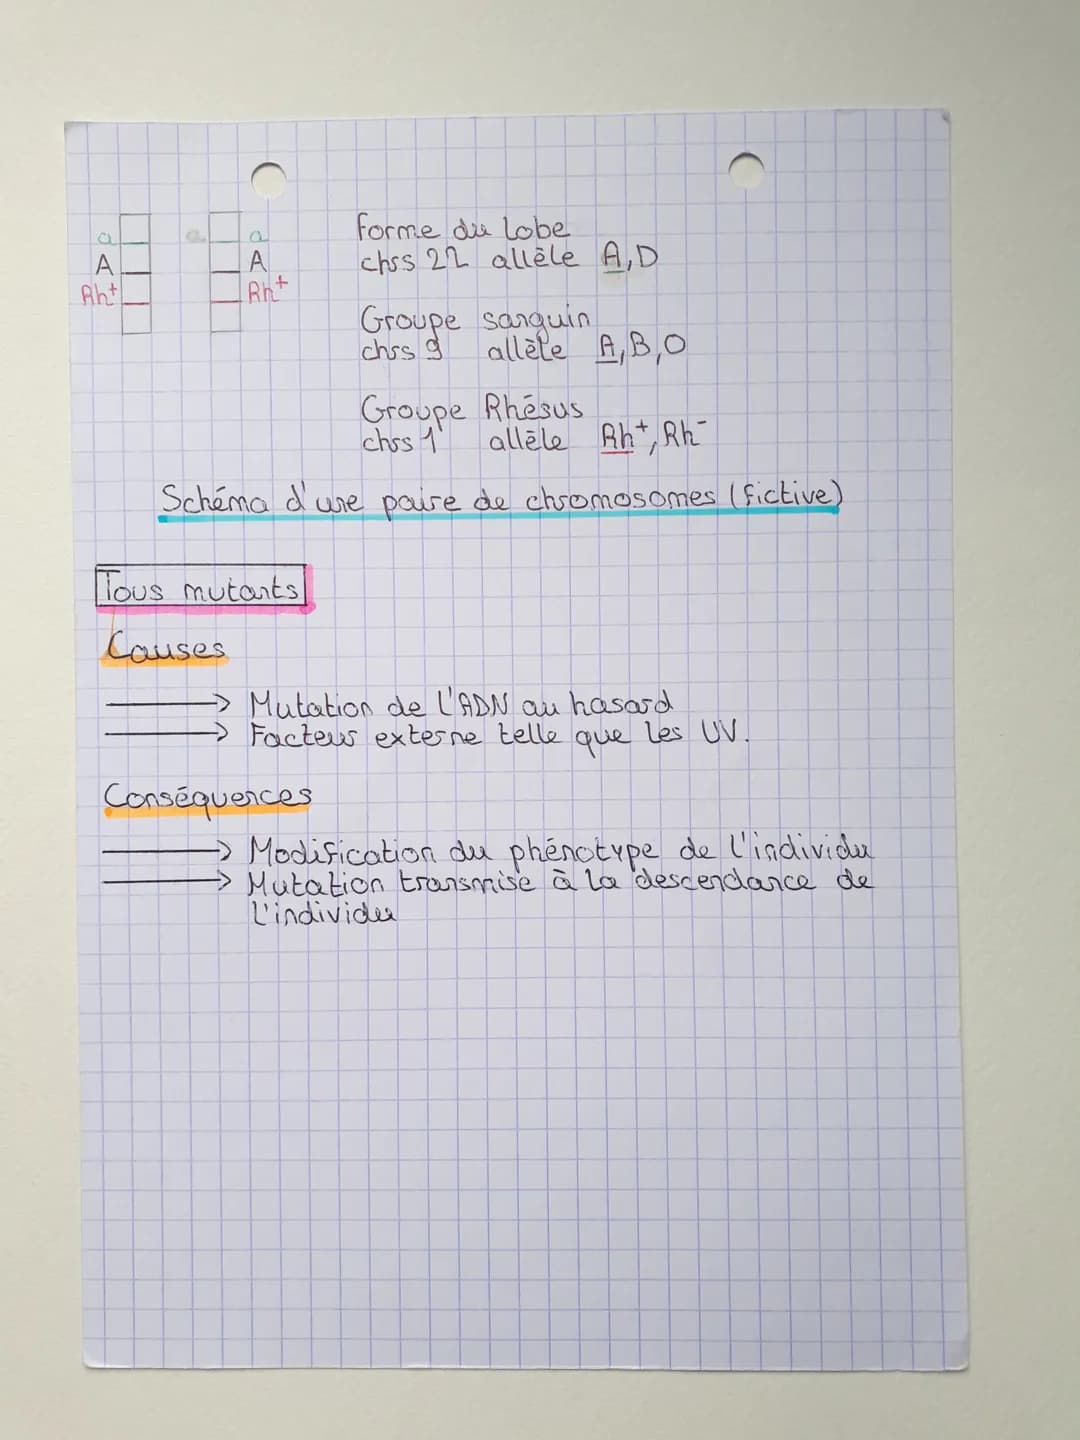 a a
A A
Rh+ Rh+
Forme du lobe
chrs 22 allèle A, D
Groupe sanguin
chrs 9 allèle A, B, O
Groupe Rhésus
chrs 1 allèle Rh+, Rh-
Schéma d'une paire de chromosomes (fictive)
Tous mutants
Causes
→ Mutation de l'ADN au hasard
→ Facteur externe telle que les UV.
Conséquences
→ Modification du phénotype de l'individu
→ Mutation transmise à la descendance de
l'individu